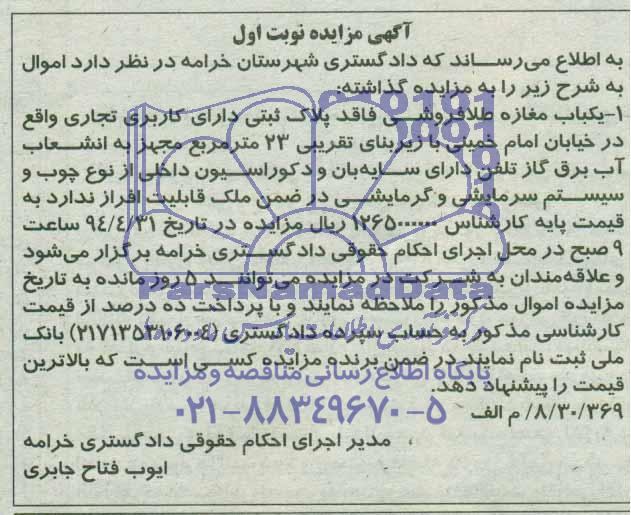 آگهی مزایده نوبت اول
به اطلاع می‌رساند که دادگستری شهرستان خرامه در نظر دارد اموال
به شرح زیر را به مزایده گذاشته:
۱-یکباب مغازه طلافروشی فاقد پلاک ثبتی دارای کاربری تجاری واقع
در خیابان امام خمینی با زیربنای تقریبی ۲۳ مترمربع مجهز به انشعاب
آب برق گاز تلفن دارای سایه‌بان و دکوراسیون داخلی از نوع چوب و
سیستم سرمایشی و گرمایشی در ضمن ملک قابلیت افراز ندارد به
قیمت پایه کارشناس ۱۲۶۵۰۰۰۰۰۰ ریال مزایده در تاریخ ۹۴/۴/۳۱ ساعت
۹ صبح در محل اجرای احکام حقوقی دادگستری خرامه برگزار می‌شود
و علاقه‌مندان به شرکت در مزایده می‌توانند ۵ روز مانده به تاریخ
مزایده اموال مذکور را ملاحظه نمایند و با پرداخت ده درصد از قیمت
کارشناسی مذکور به حساب سپرده دادگستری (۲۱۷۱۳۵۳۱۰۶۰۰۴) بانک
ملی ثبت نام نمایند در ضمن برنده مزایده کسی است که بالاترین
قیمت را پیشنهاد دهد.
۸/۳۰/۳۶۹/ م الف
مدیر اجرای احکام حقوقی دادگستری خرامه
ایوب فتاح جابری
ParsNamadData
پایگاه اطلاع رسانی مناقصه و مزایده
۰۲۱-۸۸۳۴۹۶۷۰-۵